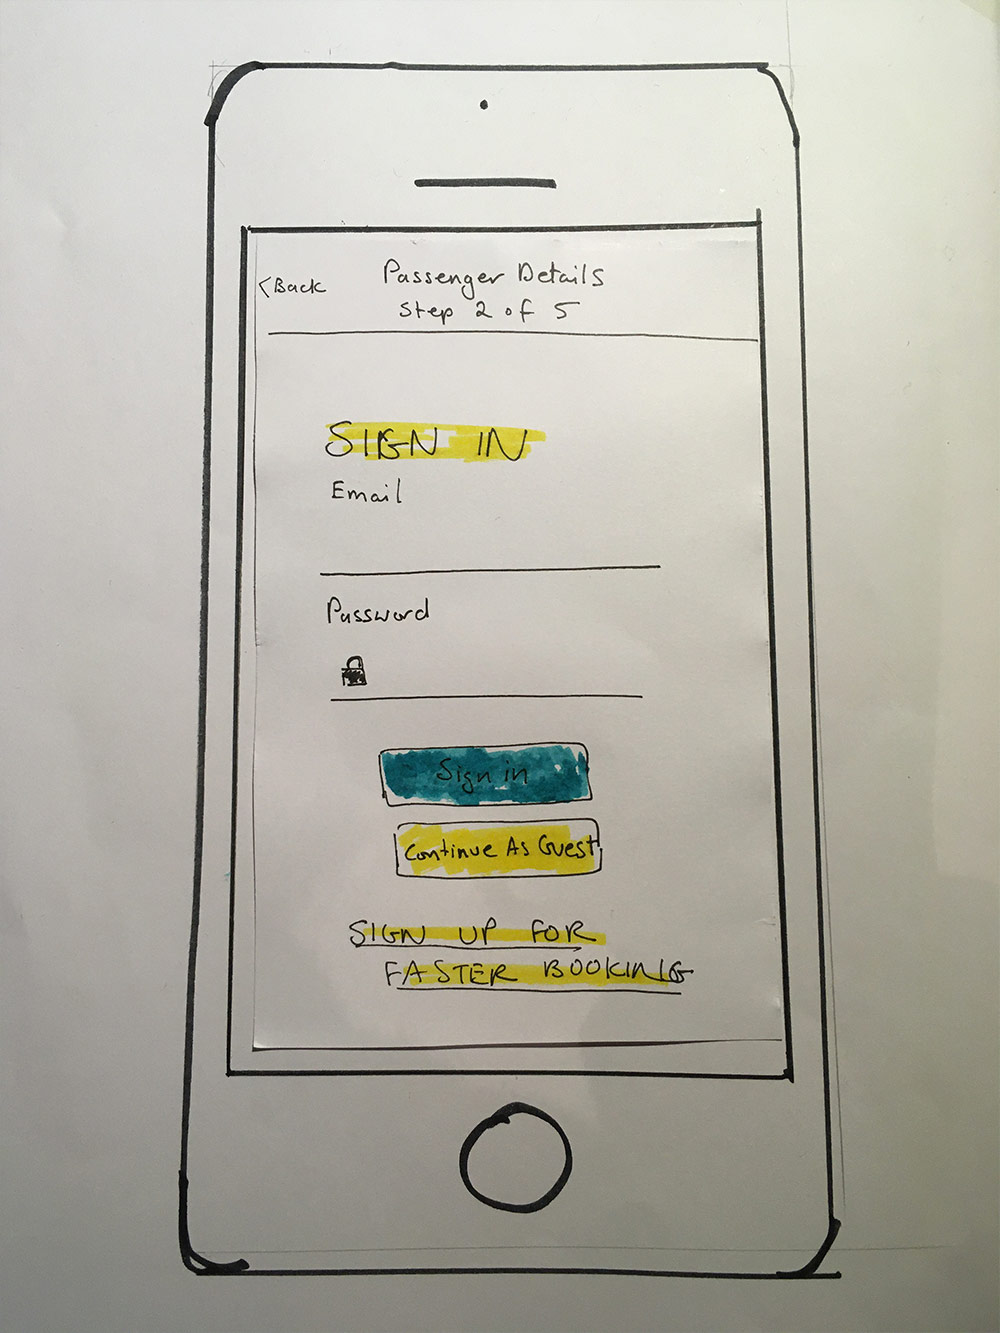 <Back
Passenger Details
Step 2 of 5
SIGN IN
Email
Password
Sign in
Continue As Guest
SIGN UP FOR
FASTER BOOKING